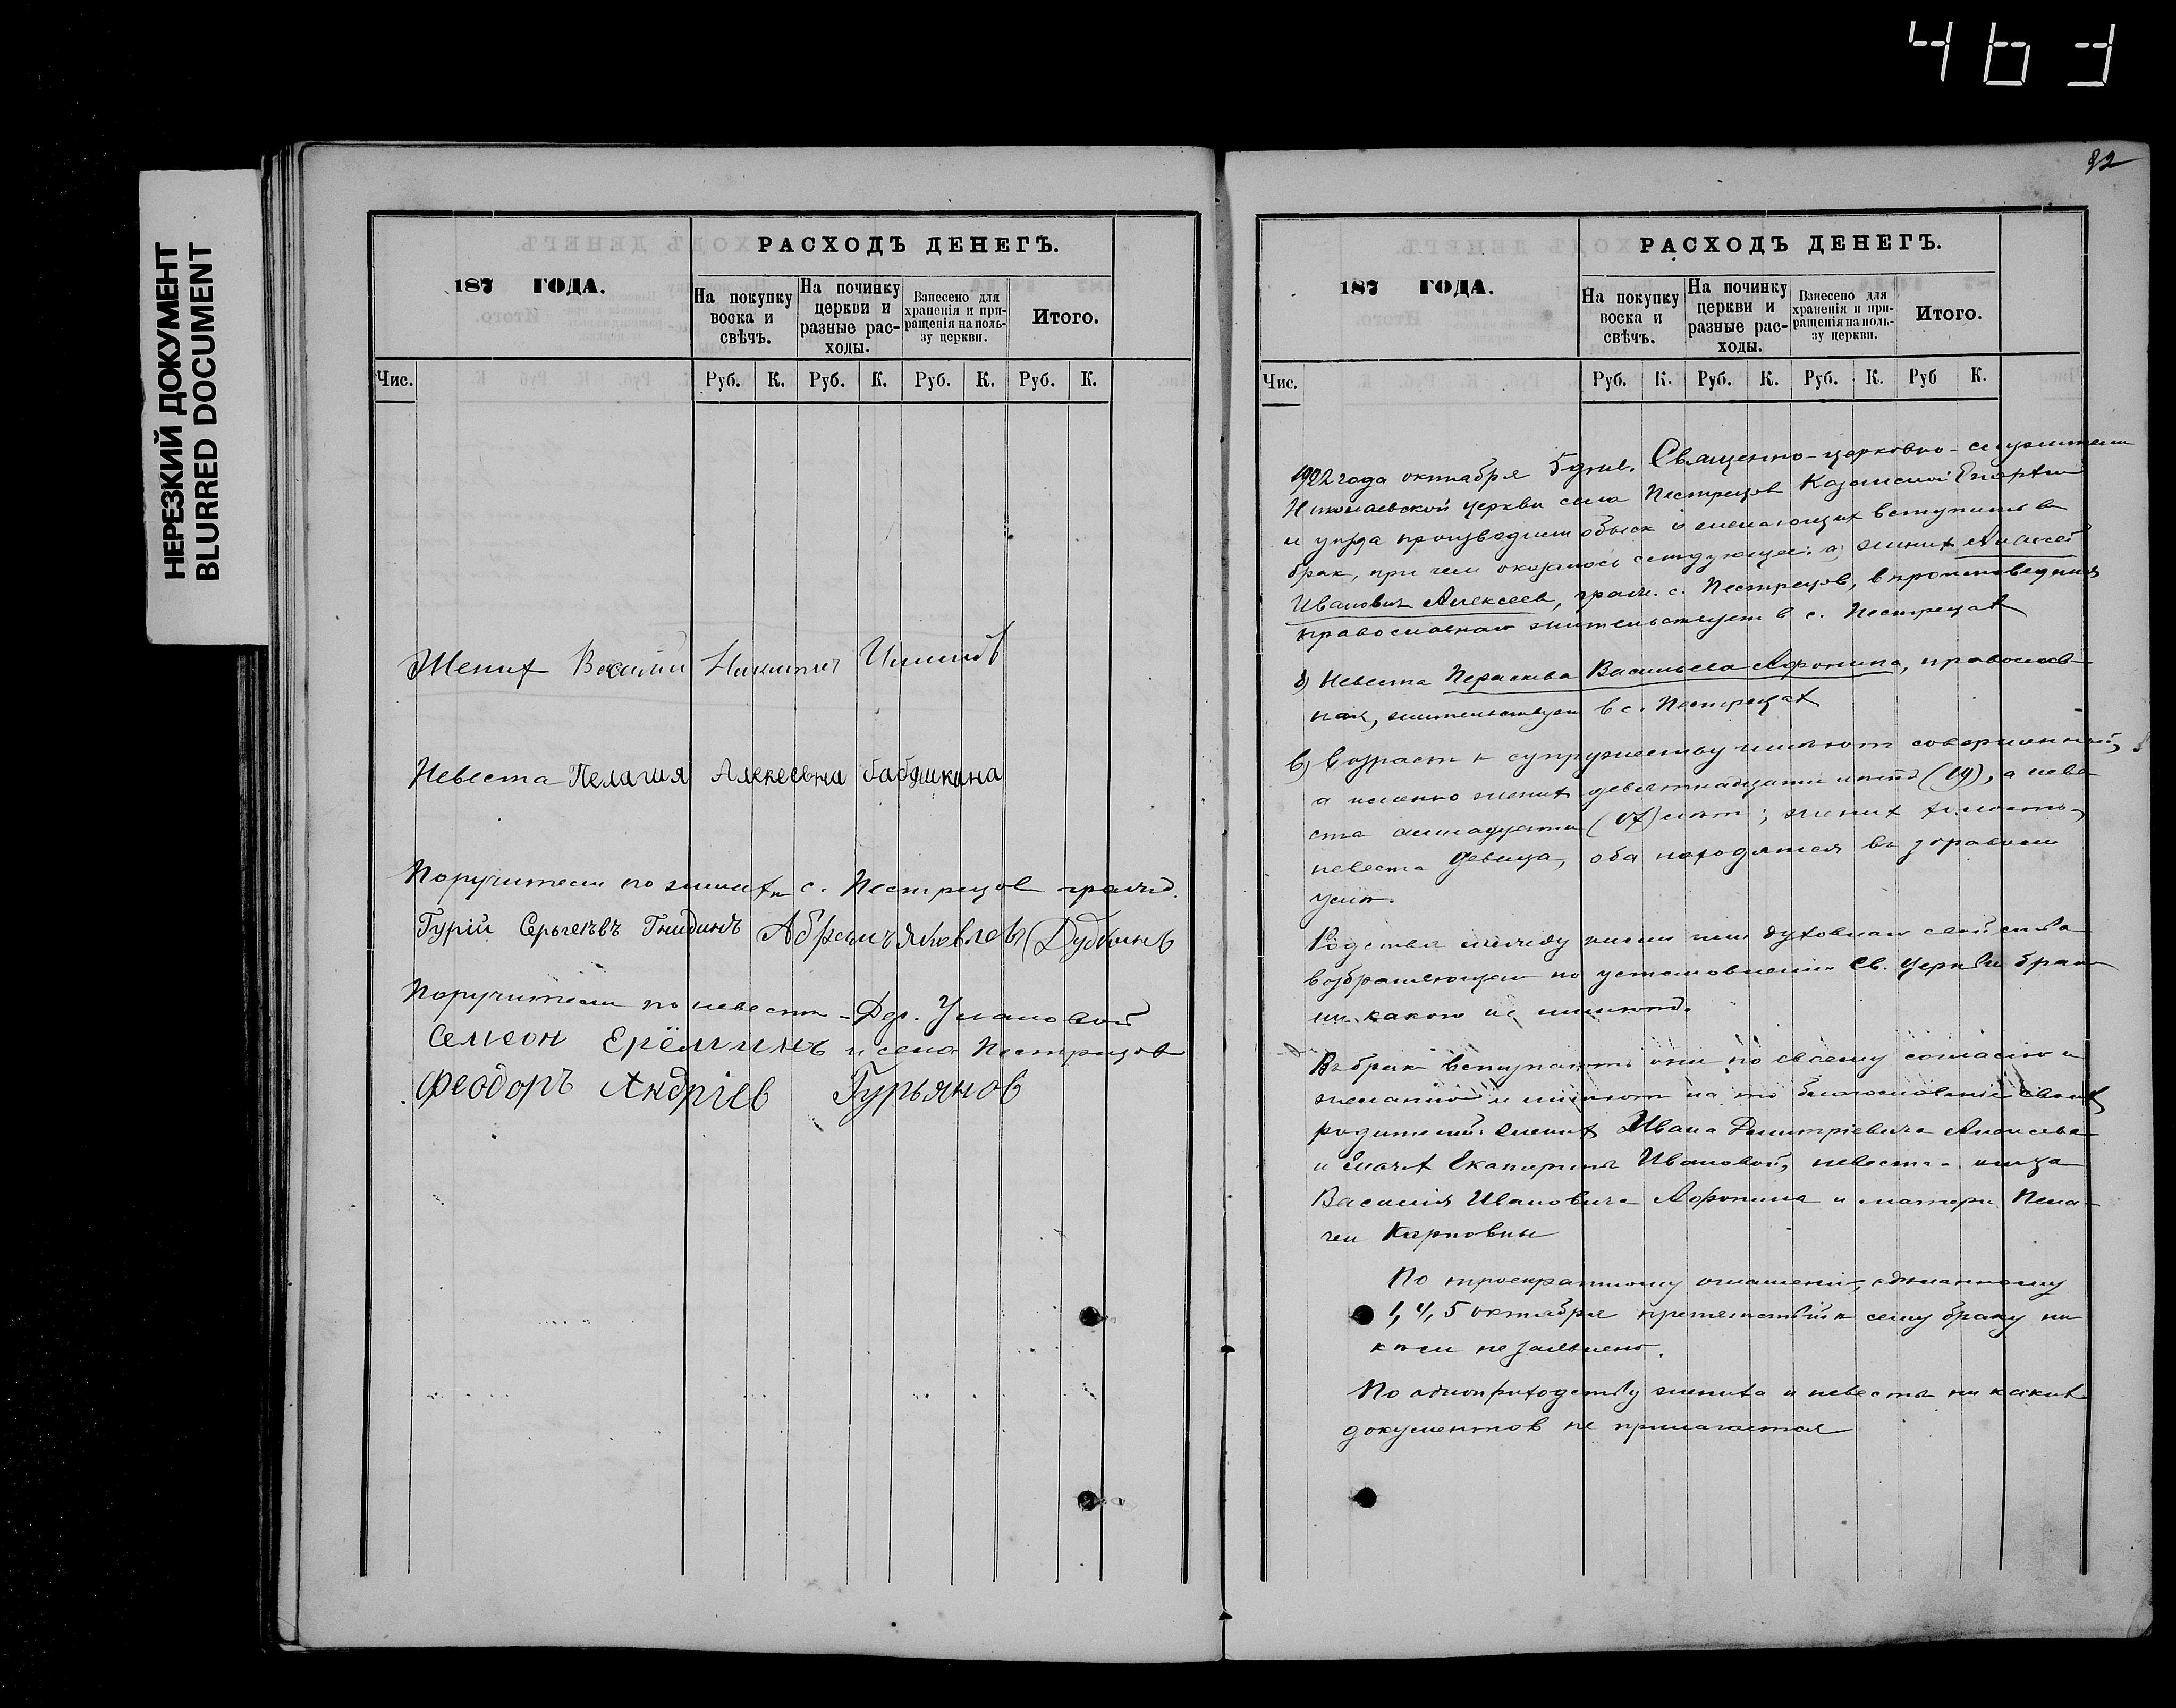 463
НЕРЕЗКИЙ ДОКУМЕНТ
BLURRED DOCUMENT
187 ГОДА.
РАСХОДЪ ДЕНЕГЪ.
На покупку воска и свѣчъ.
На починку церкви и разные рас-ходы.
Взнесено для храненія и при-ращенія на поль-зу церкви.
Итого.
Чис.
Руб. К. Руб. К. Руб. К. Руб. К.
Жених Василий Никитич
Невеста Пелагия Алексевна бабушкина
Поручители по женихе с. Пестрецов гражд.
Гурій Сергеевъ Гнидинъ Абрамъ Яковлевъ Дудкинъ
Поручители по невесте - Дер.
Семеон Ерёминъ и села Пестрецов
Феодоръ Андріев Гурьянов
92
187 ГОДА.
РАСХОДЪ ДЕНЕГЪ.
На покупку воска и свѣчъ.
На починку церкви и разные рас-ходы.
Взнесено для храненія и при-ращенія на поль-зу церкви.
Итого.
Чис.
Руб. К. Руб. К. Руб. К. Руб К.
1922 года октября 5 дня. Священно-церковно-служители
Николаевской церкви села Пестрецов Казанской Епархии
и уезда производили обыск о желающих вступить в
брак, при чем оказалось следующее: а) жених Алексей
Иванович Алексеев, гражд. с. Пестрецов, вероисповедания
православнаго жительствует в с. Пестрецах
б) Невеста Параскева Васильева Афонина, православ-
ная, жительствует в с. Пестрецах
в) Возраст к супружеству имеют совершенный,
а именно жених девятнадцати лет (19), а неве-
ста семнадцати (17) лет; жених холост,
невеста девица, оба находятся в здравом
уме.
Родства между ними или духовнаго свойства
возбраняющаго по установлению Св. Церкви брак
ни какого не имеют.
Въ брак вступают они по своему согласию и
желанию и имеют на то благословение своих
родителей: жених Ивана Димитриевича Алексеева
и Екатерины Ивановой, невеста - отца
Василія Ивановича Афонина и матери Пела-
геи Карповны
По троекратному оглашению, сделанному
1, 4, 5 октября препятствий к сему браку ни
кем не заявлено.
По одноприходству жениха и невесты ни каких
документов не прилагается